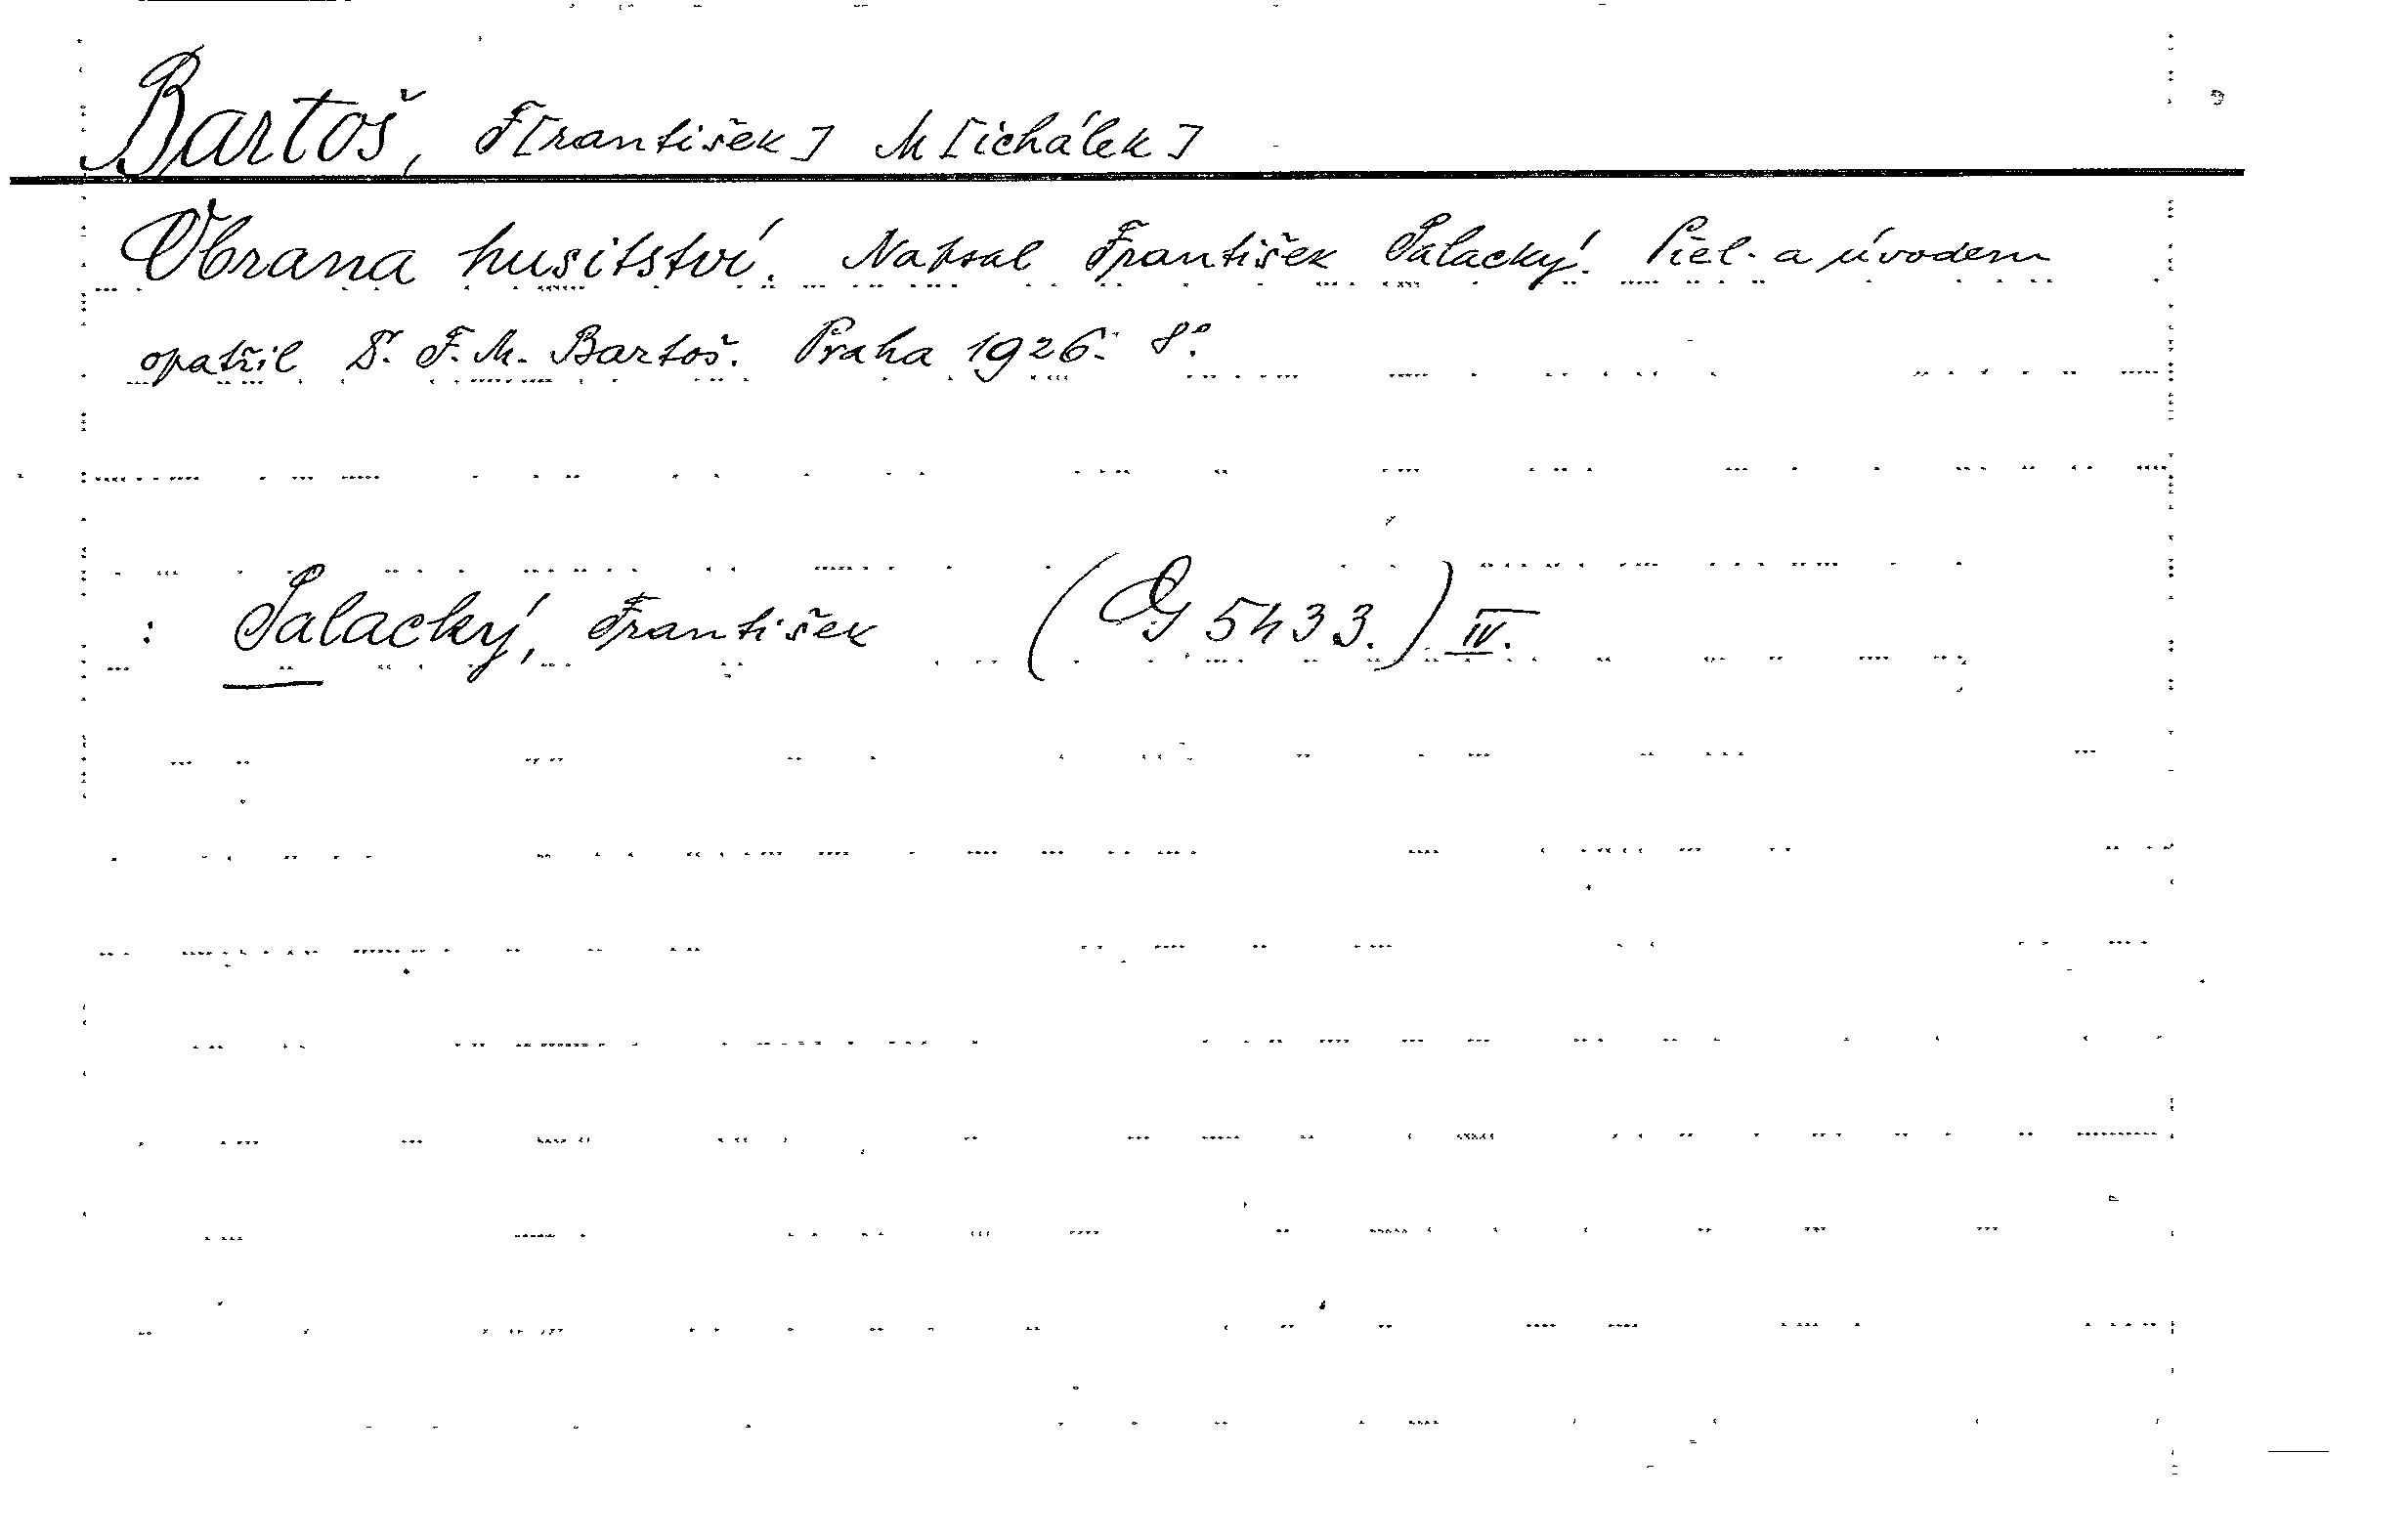 Bartoš, F[rantišek] M[ichálek]
Obrana husitství. Napsal František Palacký. Přel. a úvodem
opatřil Dr. F. M. Bartoš. Praha 1926. 8°.
: Palacký, František (Og 5433.) IV.